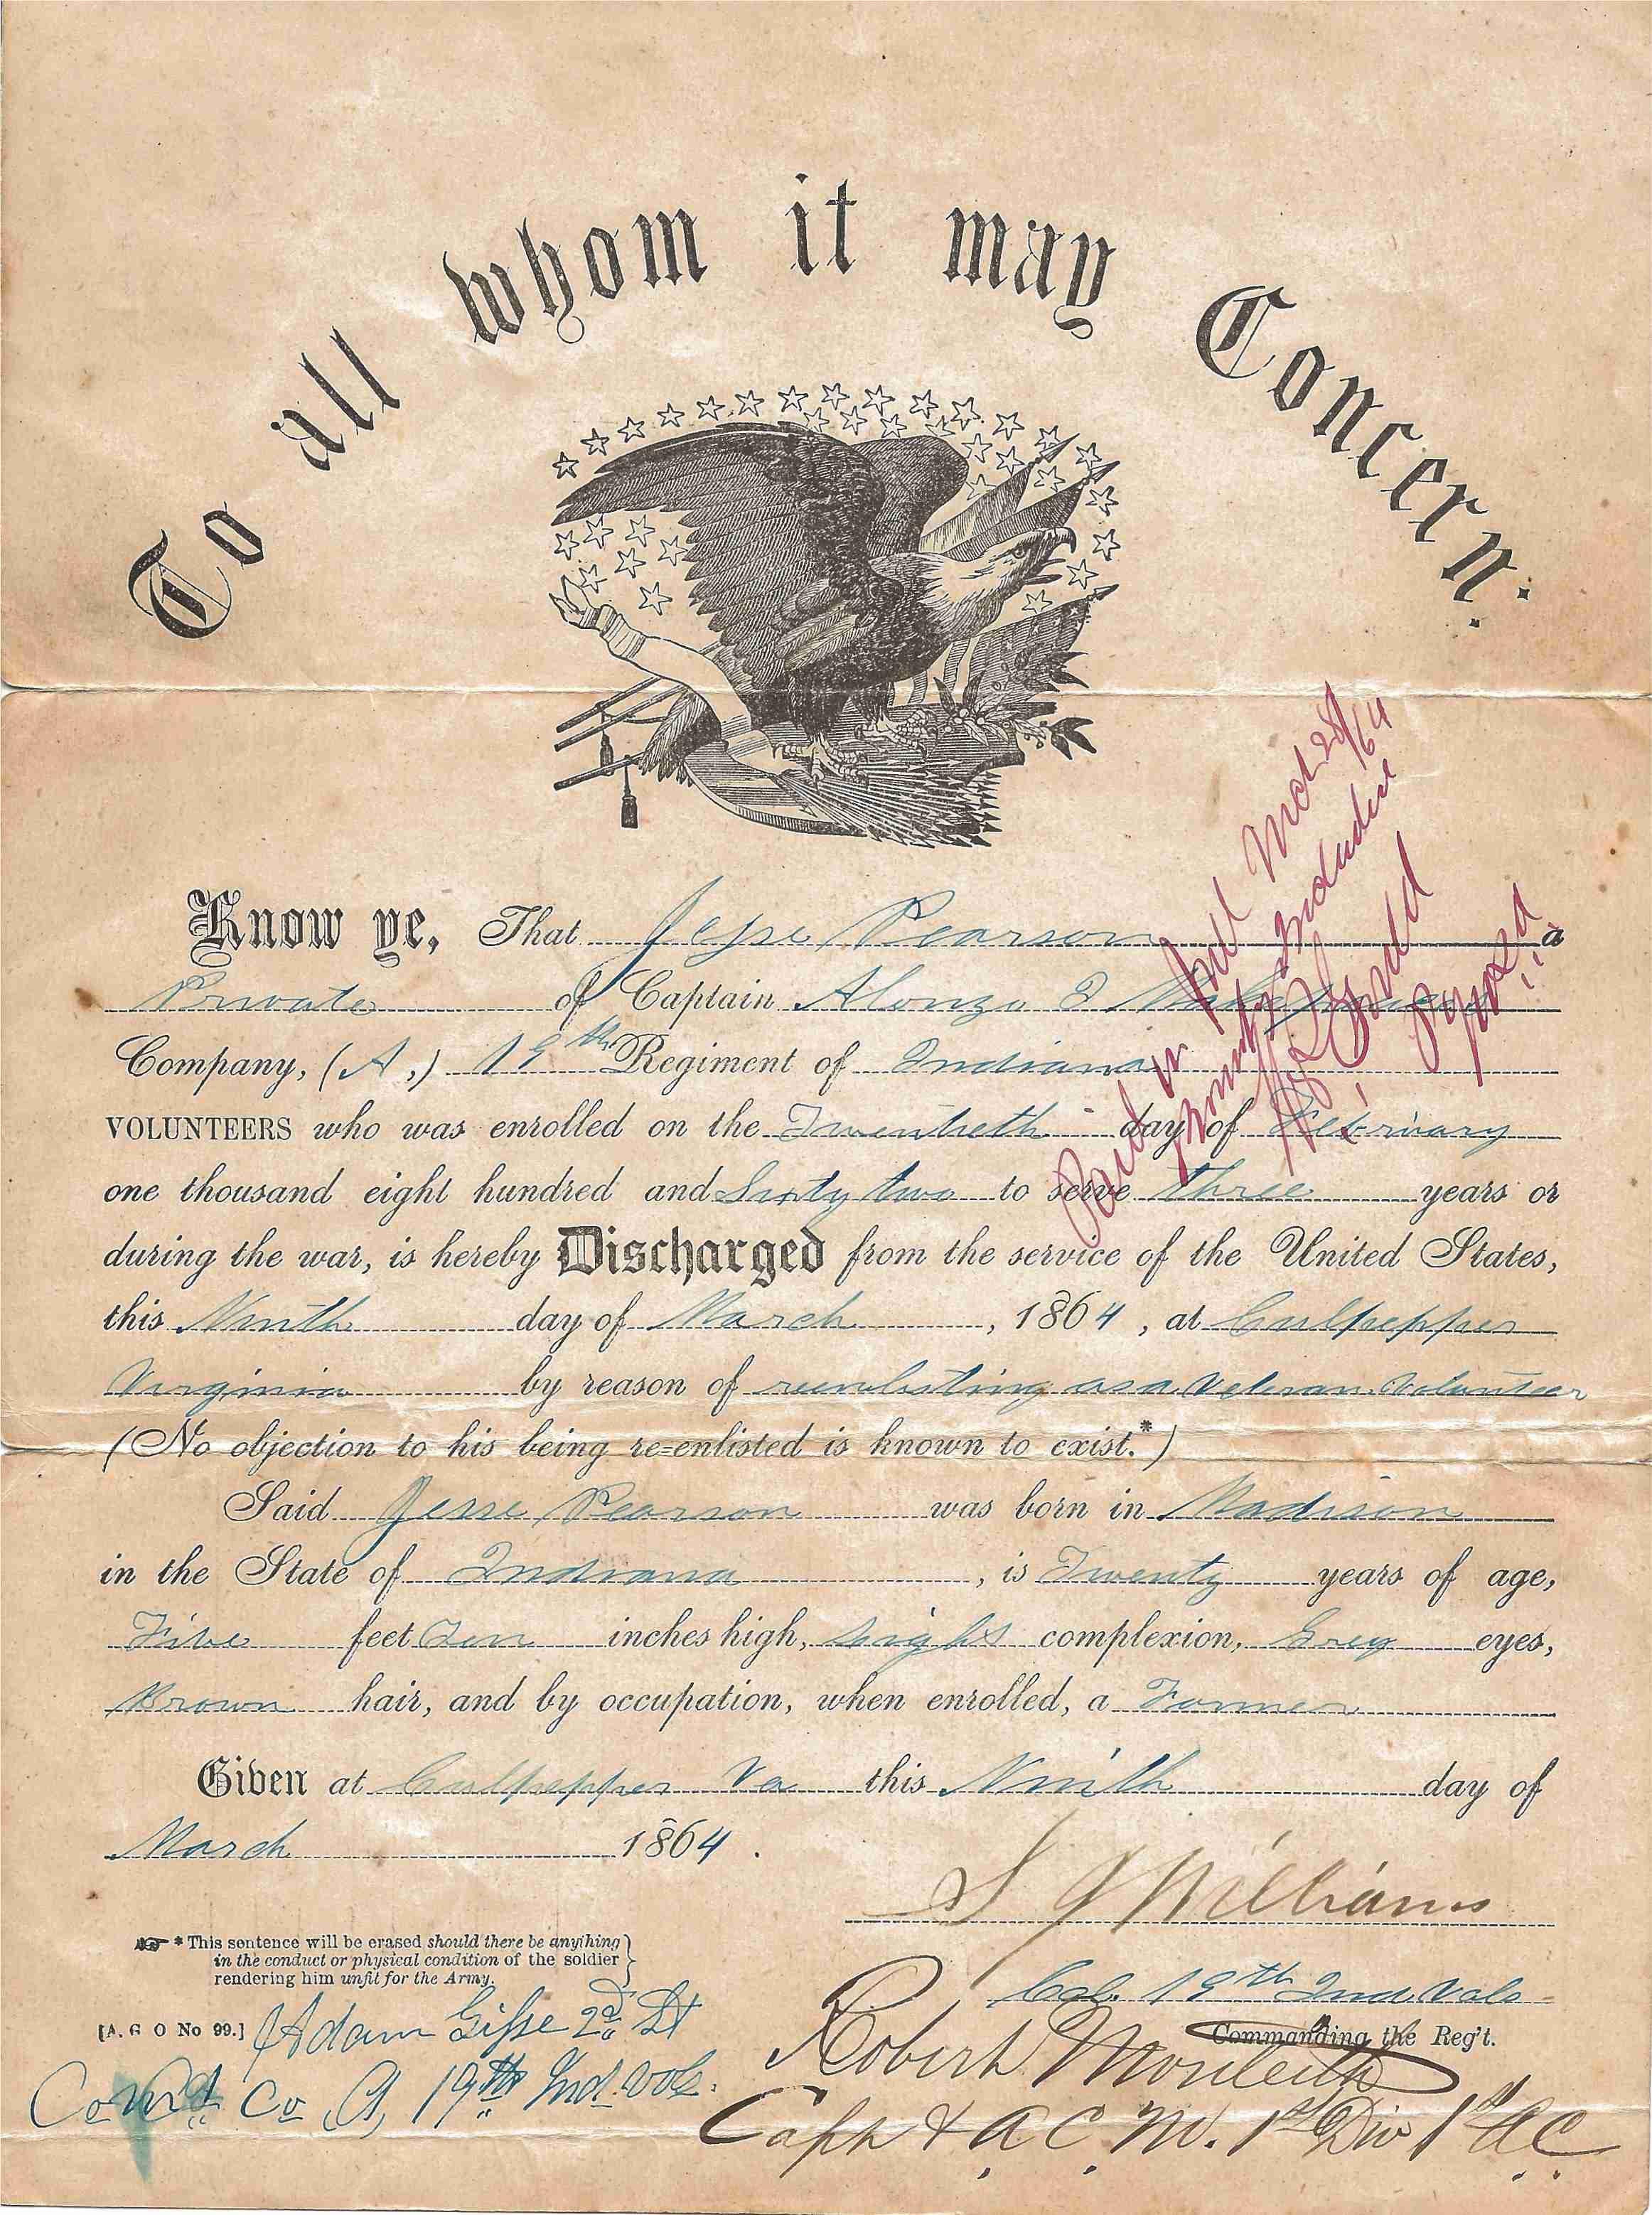 To all whom it may Concern.
Know ye, That Jesse Pearson a
Private of Captain Alonzo I Makepeace
Company, (A,) 19th Regiment of Indiana
VOLUNTEERS who was enrolled on the Twentieth day of February
one thousand eight hundred and Sixty two to serve three years or
during the war, is hereby Discharged from the service of the United States,
this Ninth day of March, 1864, at Culpepper
Virginia by reason of reenlisting as a Veteran Volunteer
(No objection to his being re=enlisted is known to exist.*)
Said Jesse Pearson was born in Madison
in the State of Indiana, is Twenty years of age,
Five feet Ten inches high, Light complexion, Grey eyes,
Brown hair, and by occupation, when enrolled, a Farmer
Given at Culpepper Va this Ninth day of
March 1864.
S J Williams
Col. 19th Ind. Vols.
Commanding the Reg't.
☞ * This sentence will be erased should there be anything
in the conduct or physical condition of the soldier
rendering him unfit for the Army.
[A. G O No 99.]
Adam Gisse 2d Lt
Com'd Co A, 19th Ind. Vols.
Robert Monteith
Capt & A C M. 1st Div 1st A C
Paid in full Mch 28/64
Bounty Included